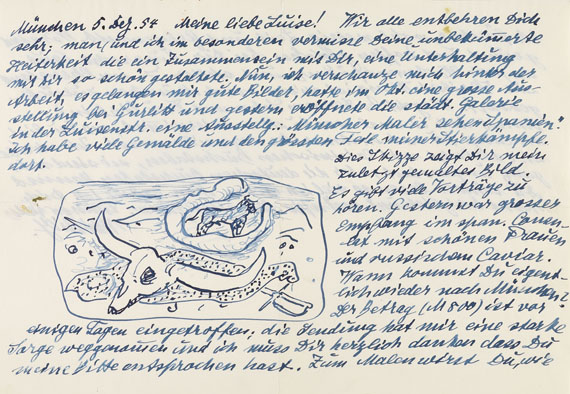 München 5. Dez. 54 Meine liebe Luise! Wir alle entbehren Dich
sehr, man und ich im besonderen vermisse Deine unbekümmerte
Heiterkeit die ein Zusammensein mit Dir, eine Unterhaltung
mit Dir so schön gestaltete. Nun, ich verschanze mich hinter der
Arbeit, es gelangen mir gute Bilder, hatte im Okt. eine grosse Aus-
stellung bei Gurlitt und gestern eröffnete die städt. Galerie
in der Luisenstr. eine Ausstellg. "Münchner Maler sehen Spanien".
Ich habe viele Gemälde und den grössten Teil meiner Stierkämpfe
dort.
Diese Skizze zeigt Dir mein
zuletzt gemaltes Bild.
Es gibt viele Vorträge zu
hören. Gestern war grosser
Empfang im span. Consu-
lat mit schönen Frauen
und russischem Caviar.
Wann kommst Du eigent-
lich wieder nach München?
Der Betrag (M 800) ist vor
einigen Tagen eingetroffen, die Sendung hat mir eine starke
Sorge weggenommen und ich muss Dir herzlich danken dass Du
meine Bitte entsprochen hast. Zum Malen wirst Du, wie